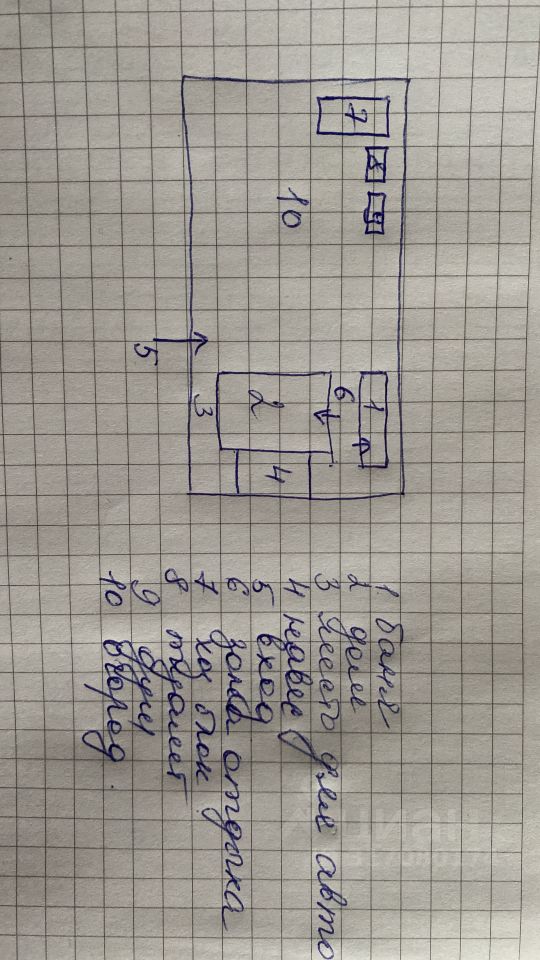 7
8
9
1
6
10
2
4
3
5
1 баня
2 дом
3 место для авто
4 навес
5 вход
6 зона отдыха
7 хоз блок
8 туалет
9 душ
10 огород